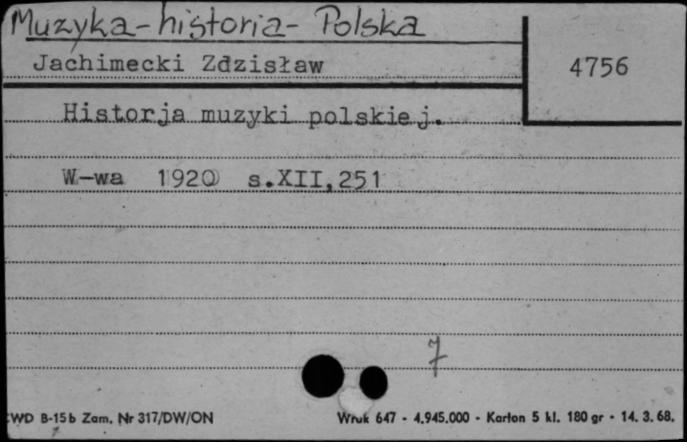 Muzyka-historia-Polska
Jachimecki Zdzisław
4756
Historja muzyki polskiej.
W-wa 1920 s.XII,251
7
WD B-15b Zam. Nr 317/DW/ON
Wruk 647 - 4.945.000 - Karton 5 kl. 180 gr - 14. 3. 68.